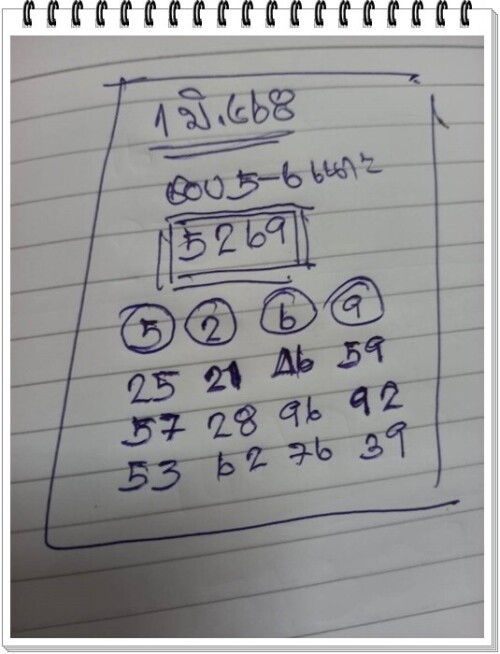 1 มิ.ย 68
ชอบ 5-6 เพราะ
5269
5 2 6 9
25 21 16 59
57 28 96 92
53 62 76 39